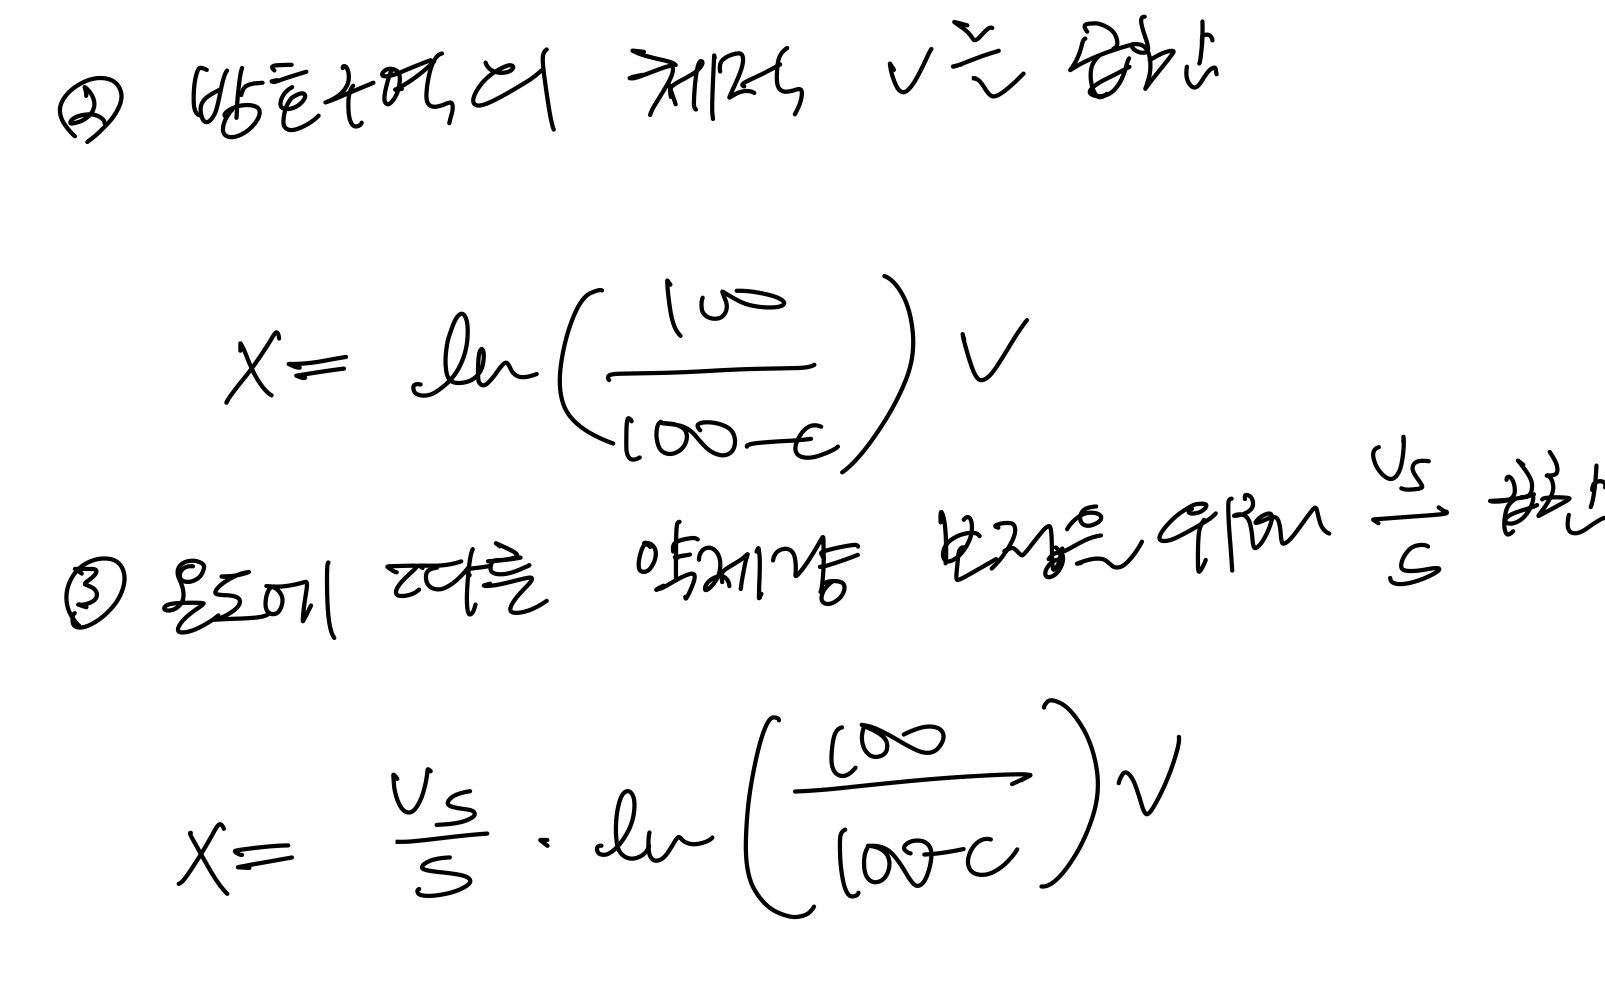 ② 방호구역의 체적 V는 곱한
X = ln(100/(100-C)) V
③ 온도에 따른 약제량 보정을 위해 Vs/S 곱한
X = Vs/S · ln(100/(100-C)) V